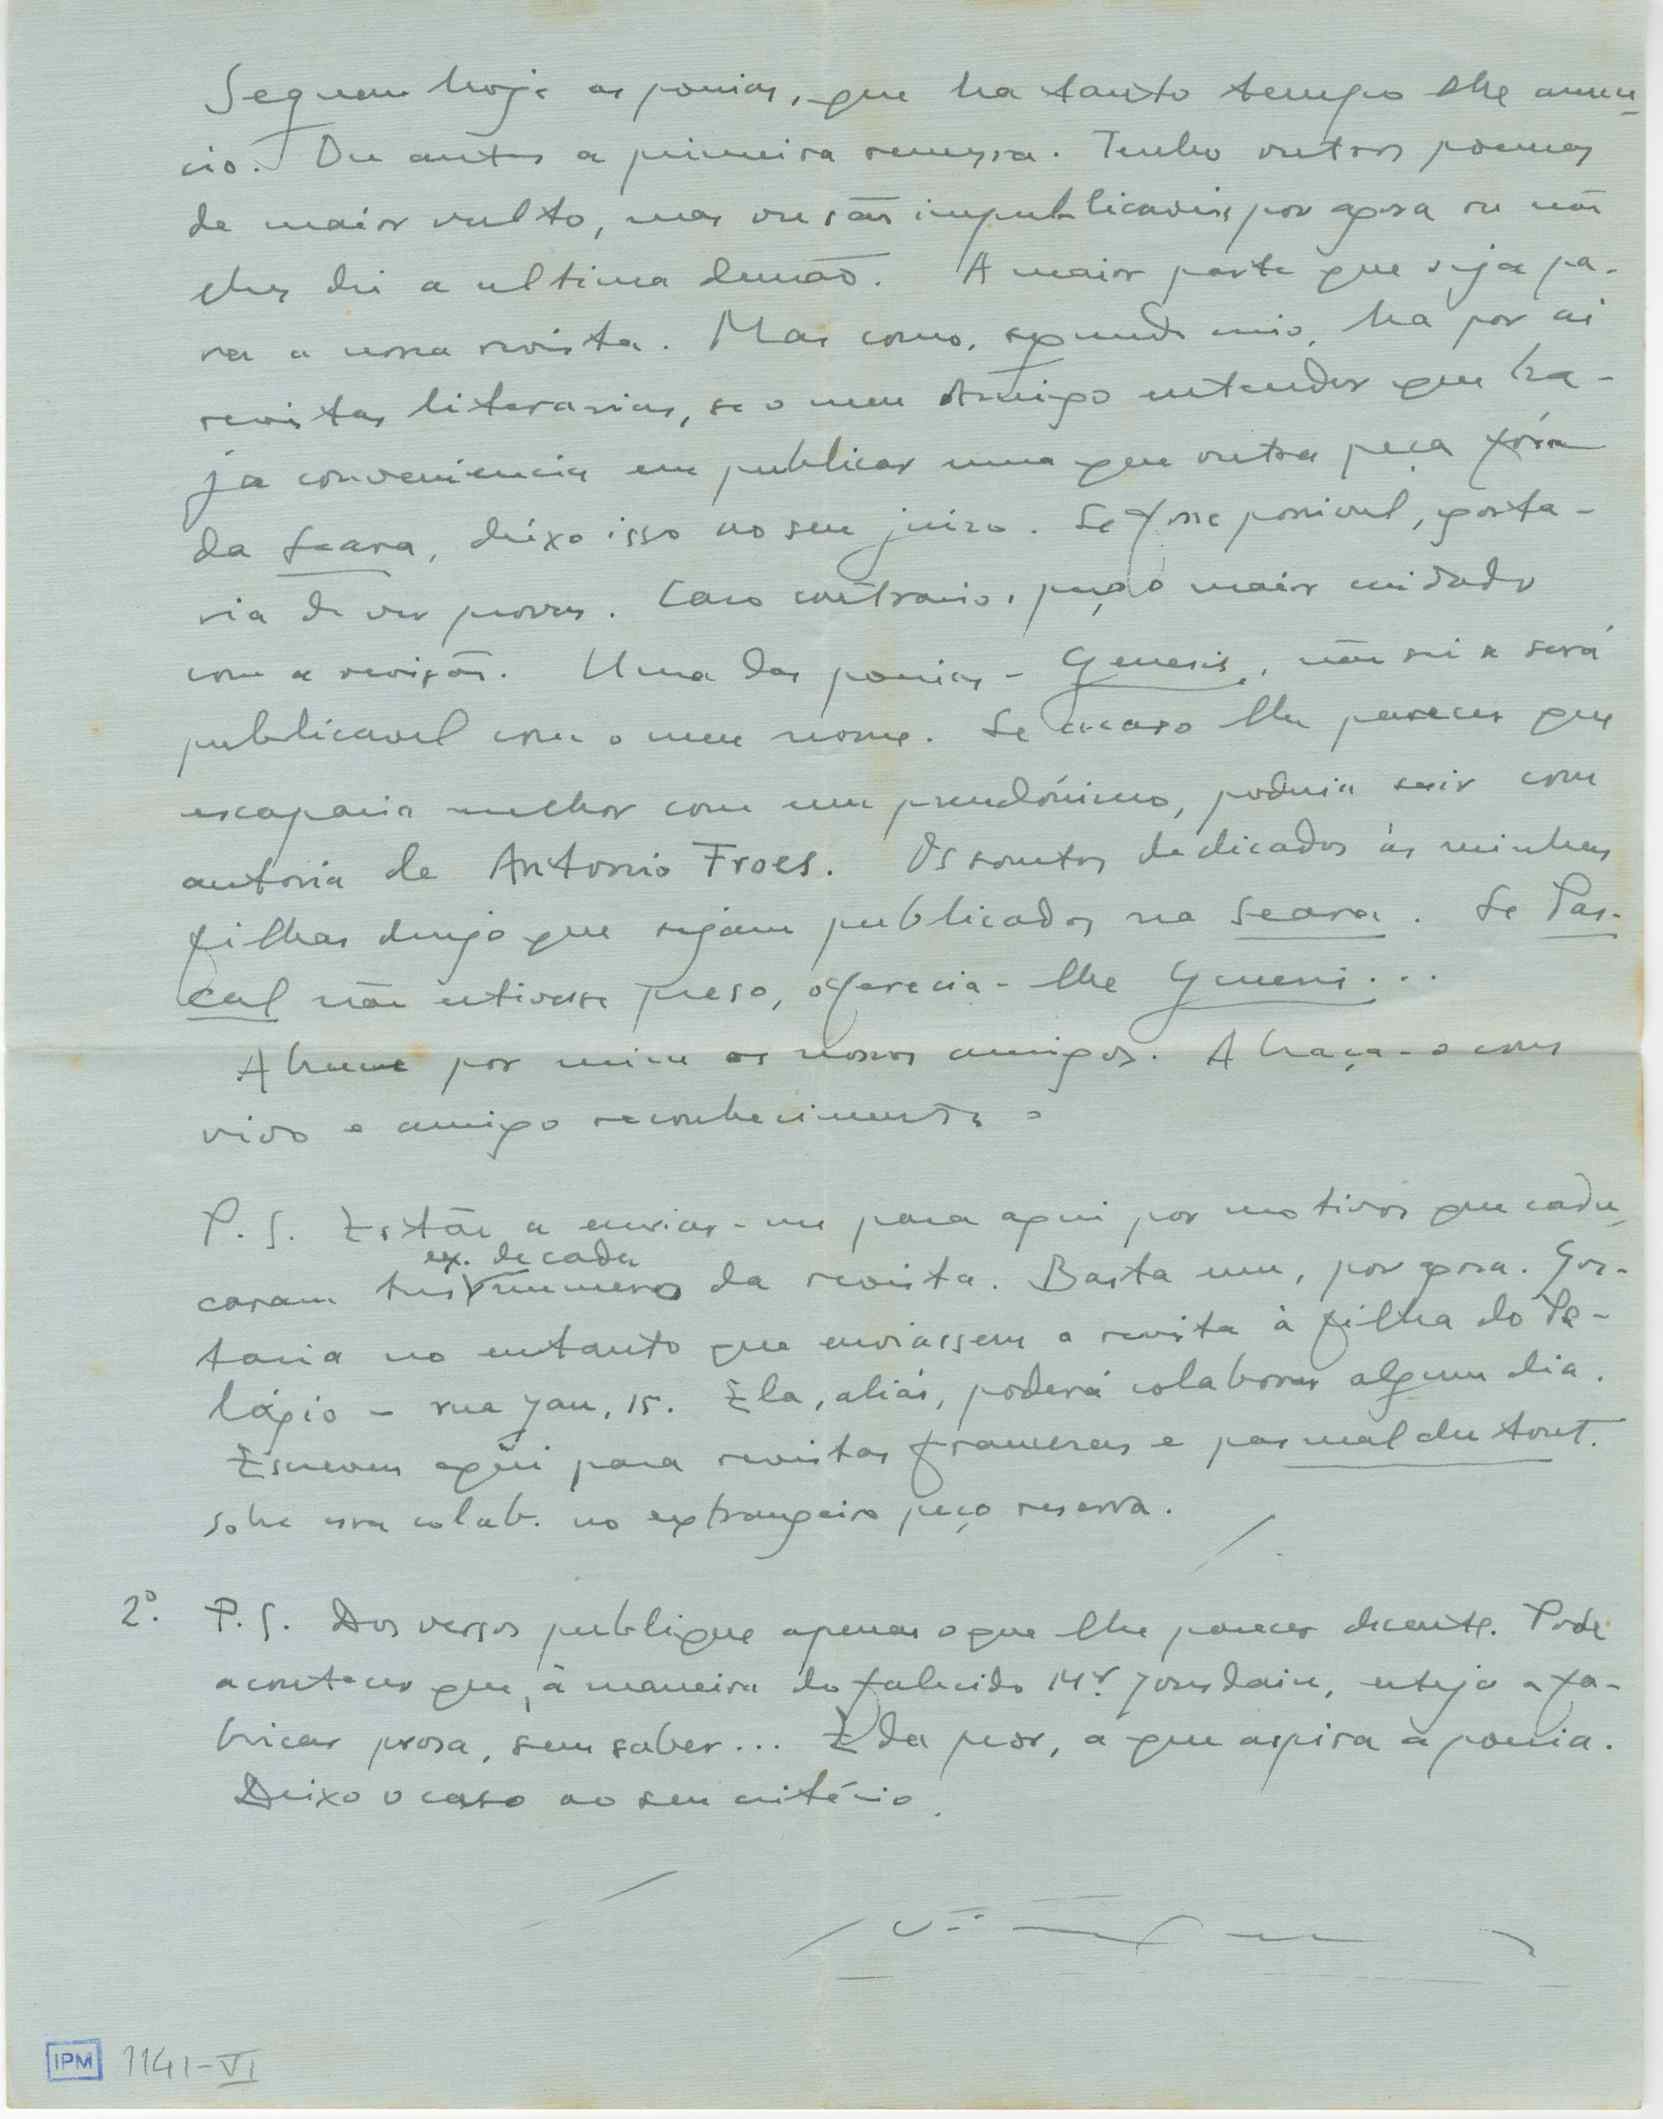 Seguem hoje as poesias, que ha tanto tempo lhe anun-
cio. Ou antes a primeira remessa. Tenho outros poemas
de maior vulto, mas ou são impublicaveis por agora ou não
lhes dei a ultima demão. A maior parte que seja pa-
ra a nossa revista. Mas como, segundo creio, ha por ai
revistas literarias, se o meu Amigo entender que ha-
ja conveniencia em publicar uma que outra peça fóra
da Seara, deixo isso ao seu juizo. Se fosse possivel, gosta-
ria de ver provas. Caso contrario, peço o maior cuidado
com a revisão. Uma das poesias - Genesis, não sei se será
publicavel com o meu nome. Se acaso lhe parecer que
escaparia melhor com um pseudónimo, poderia sair com
autoria de Antonio Froes. Os sonetos dedicados ás minhas
filhas desejo que sejam publicados na Seara. Se Pas-
cal não estivesse preso, oferecia-lhe Genesis...
Abrace por mim os nossos amigos. Abraça-o com
vivo e amigo reconhecimento o
P. S. Estão a enviar-me para aqui por motivos que cadu-
ex. de cada
caram tres numero da revista. Basta um, por agora. Gos-
taria no entanto que enviassem a revista à filha do Pe-
lágio - rua Jau, 15. Ela, aliás, poderá colaborar algum dia.
Escreveu aqui para revistas francesas e pas mal du tout.
Sobre essa colab. no extrangeiro peço reserva.
2º. P. S. Dos versos publique apenas o que lhe parecer decente. Pode
acontecer que, à maneira do falecido Mr. Jourdain, esteja a fa-
bricar prosa, sem saber... E da peor, a que aspira a poesia.
Deixo o caso ao seu critério.
IPM 1141-VI